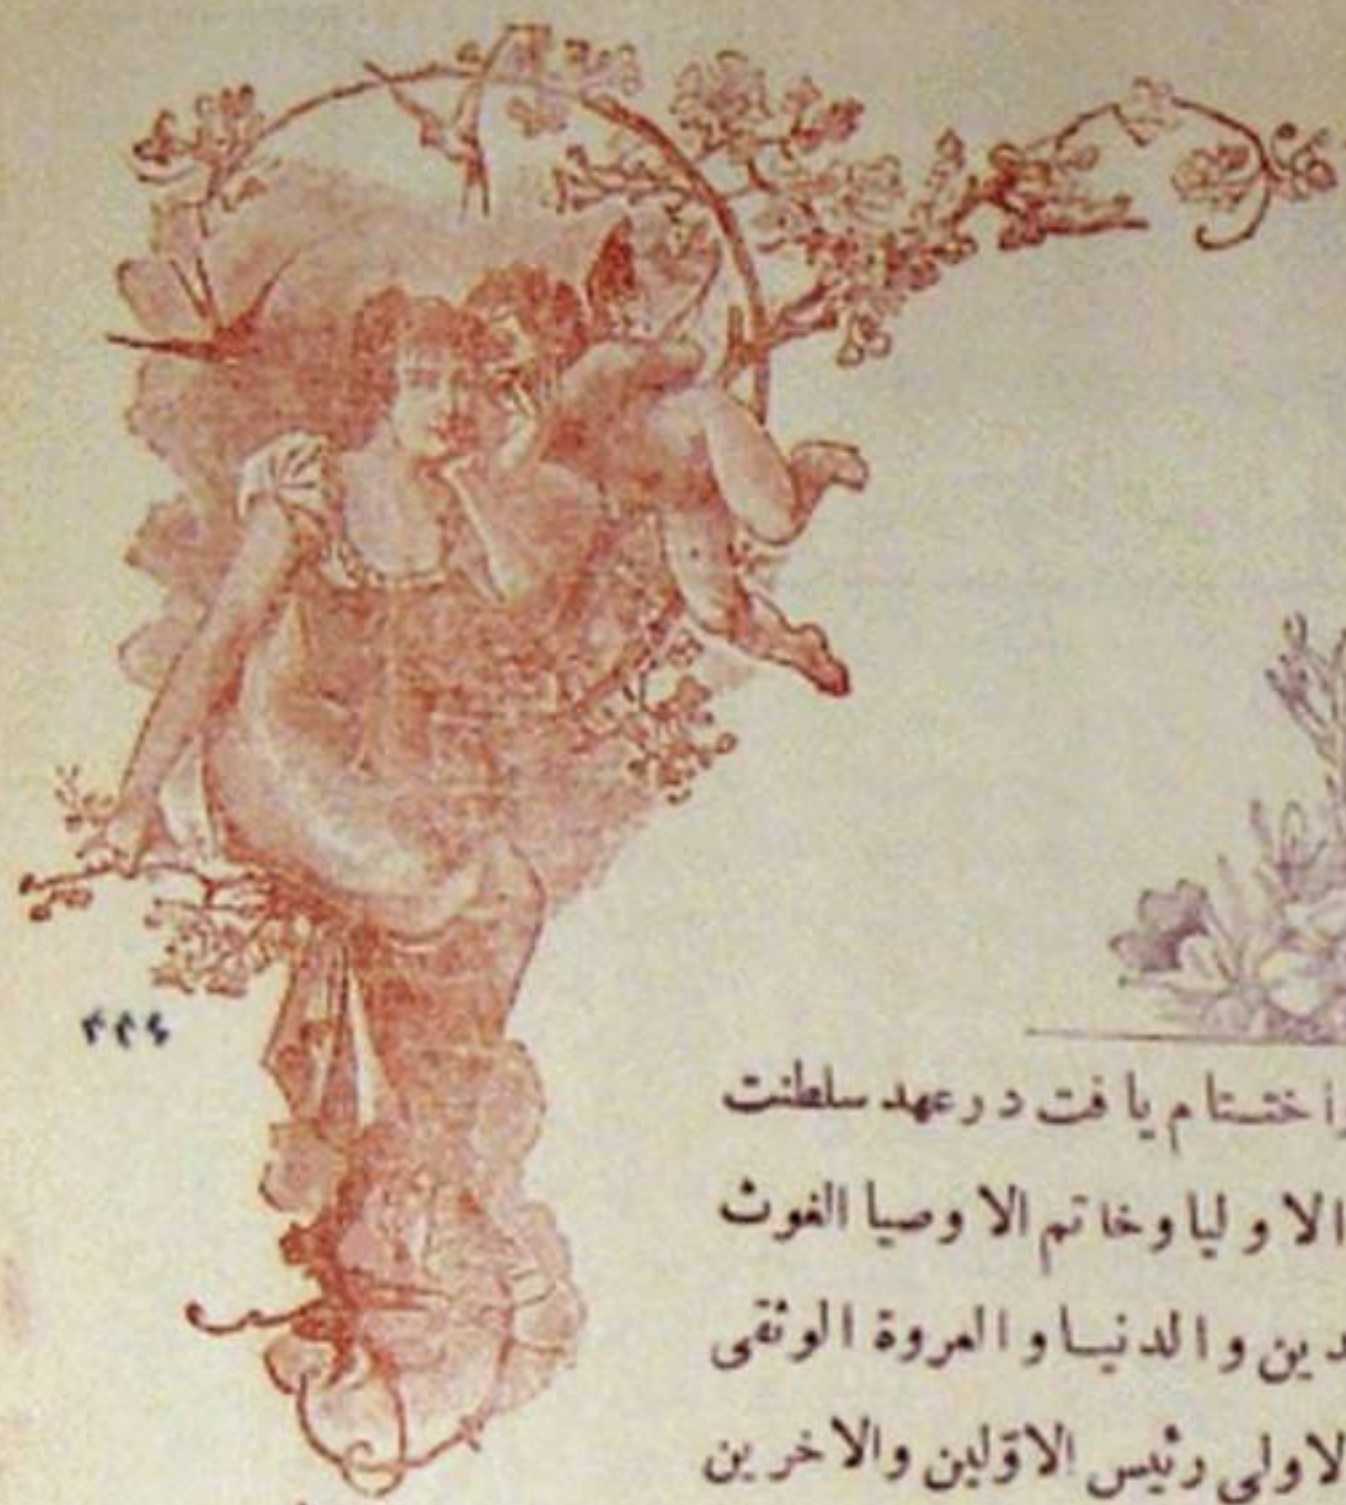 ۴۴۶
اختتام یافت در عهد سلطنت
الاولیا و خاتم الاوصیا الغوث
دین و الدنیا و العروة الوثقی
الاولی رئیس الاوّلین والاخرین